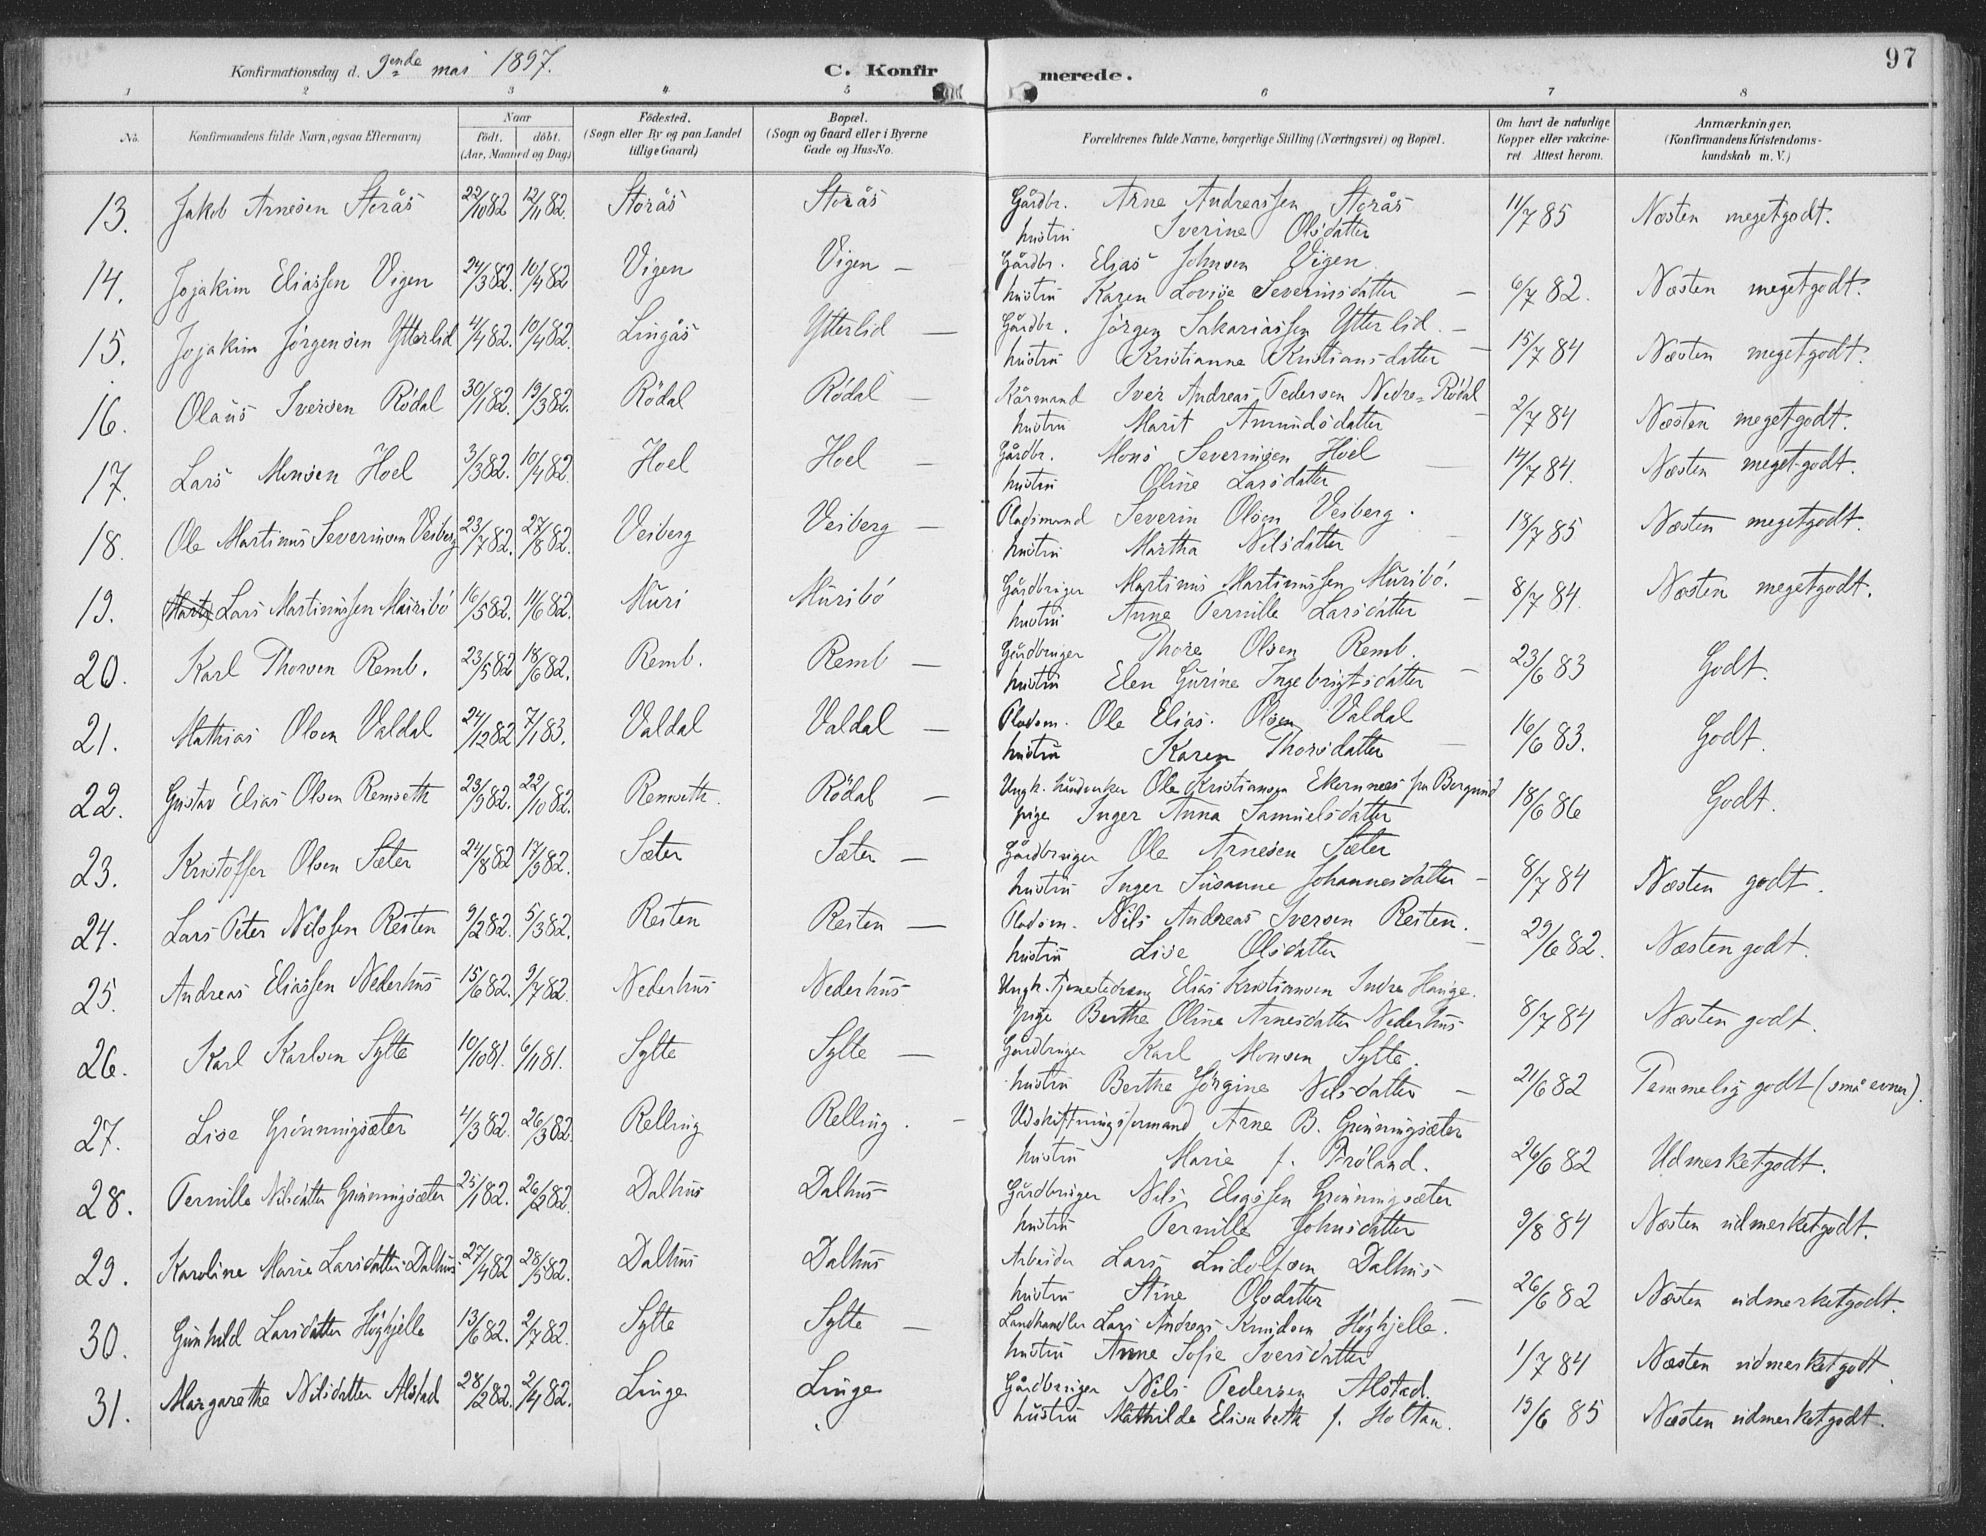 97
Konfirmationsdag d. 9ende mai 1897. C. Konfirmerede.
1 2 3 4 5 6 7 8
No. Konfirmandens fulde Navn, ogsaa Efternavn) Naar født. døbt. (Aar, Maaned og Dag) Fødested. (Sogn eller By og paa Landet tillige Gaard) Bopæl. (Sogn og Gaard eller i Byerne Gade og Hus-No. Forældrenes fulde Navne, borgerlige Stilling (Næringsvei) og Bopæl. Om havt de naturlige Kopper eller vakcineret. Attest herom. Anmærkninger. (Konfirmandens Kristendomskundskab m. V.)
13. Jakob Arnesen Storås 22/10 82 12/11 82. Storås Storås Gårdbr. Arne Andreassen Storås 11/7 85 Næsten megetgodt.
hustru Sverine Olsdatter
14. Jojakim Eliassen Vigen 24/3 82. 10/4 82 Vigen Vigen — Gårdbr. Elias Johnsen Vigen 6/7 82. Næsten megetgodt.
hustru Karen Lovise Severinsdatter —
15. Jojakim Jørgensen Ytterlid 4/4 82. 10/4 82. Lingås Ytterlid — Gårdbr. Jørgen Sakariassen Ytterlid. — 15/7 84 Næsten megetgodt.
hustru Kristianne Kristiansdatter —
16. Olaus Iversen Rödal 30/1 82. 19/3 82. Rödal Rödal — Kårmand Iver Andreas Pedersen Nedre-Rödal 2/7 84 Næsten megetgodt.
hustru Marit Amundsdatter —
17. Lars Monsen Hoel 3/3 82. 10/4 82 Hoel Hoel — Gårdbr. Mons Severinsen Hoel 14/7 84. Næsten meget-godt.
hustru Oline Larsdatter
18. Ole Martinus Severinsen Veiberg 23/7 82. 27/8 82. Veiberg Veiberg — Pladsmand Severin Olsen Veiberg. 18/7 85 Næsten megetgodt.
hustru Martha Nilsdatter
19. (Marti) Lars Martinussen Muribö 16/5 82. 11/6 82. Muri Muribö Gårdbruger Martinus Martinussen Muribö. 8/7 84. Næsten megetgodt.
hustru Anne Pernille Larsdatter —
20. Karl Thorsen Remb. 23/5 82 18/6 82. Remb. Remb — Gårdbruger Thore Olsen Remb. 23/6 83 Godt.
hustru Elen Gurine Ingebrigtsdatter —
21. Mathias Olsen Valdal 24/12 82 7/1 83. Valdal Valdal — Pladsm. Ole Elias Olsen Valdal 16/6 83. Godt.
hustru Karen Thorsdatter —
22. Gustav Elias Olsen Remseth 23/9 82. 22/10 82. Remseth. Rödal — Ungk. håndverker Ole Kristiansen Ekornnes fra Borgund 18/6 86 Godt.
pige Inger Anna Samuelsdatter
23. Kristoffer Olsen Sæter 24/8 82 17/9 82. Sæter Sæter — Gårdbruger Ole Arnesen Sæter 8/7 84 Næsten godt.
hustru Inger Susanne Johannesdatter —
24. Lars Peter Nilssen Resten 9/2 82. 5/3 82. Resten Resten — Pladsm. Nils Andreas Iversen Resten. 29/6 82. Næsten godt.
hustru Lise Olsdatter —
25. Andreas Eliassen Nederhus 15/6 82. 9/7 82. Nederhus Nederhus. Ungk. Tjenestedreng Elias Kristiansen Indre Hauge. 8/7 84 Næsten godt.
pige Berthe Oline Arnesdatter Nederhus
26. Karl Karlsen Sylte 10/10 81. 6/11 81. Sylte Sylte — Gårdbruger Karl Monsen Sylte. 21/6 82 Temmelig godt (små evner).
hustru Berthe Jørgine Nilsdatter —
27. Lise Grönningsæter 4/3 82. 26/3 82. Relling Relling. — Udskiftningsformand Arne B. Grönningsæter 26/6 82 Udmerketgodt.
hustru Marie f. Fröland.
28. Pernille Nilsdatter Grönningsæter 25/1 82. 26/2 82. Dalhus Dalhus Gårdbruger Nils Eliassen Grönningsæter 9/8 84 Næsten udmerketgodt.
hustru Pernille Johnsdatter
29. Karoline Marie Larsdatter Dalhus 27/4 82 28/5 82. Dalhus Dalhus Arbeider Lars Ludolfsen Dalhus 26/6 82 Næsten udmerketgodt.
hustru Stine Olsdatter —
30. Gunhild Larsdatter Höghjelle 13/6 82. 2/7 82. Sylte Sylte — Landhandler Lars Andreas Knudsen Höghjelle. 1/7 84 Næsten udmerketgodt.
hustru Anne Sofie Iversdatter
31. Margarethe Nilsdatter Alstad 28/2 82. 2/4 82. Linge Linge Gårdbruger Nils Pedersen Alstad. 19/6 85 Næsten udmerketgodt.
hustru Mathilde Elisabeth f. Holtan.